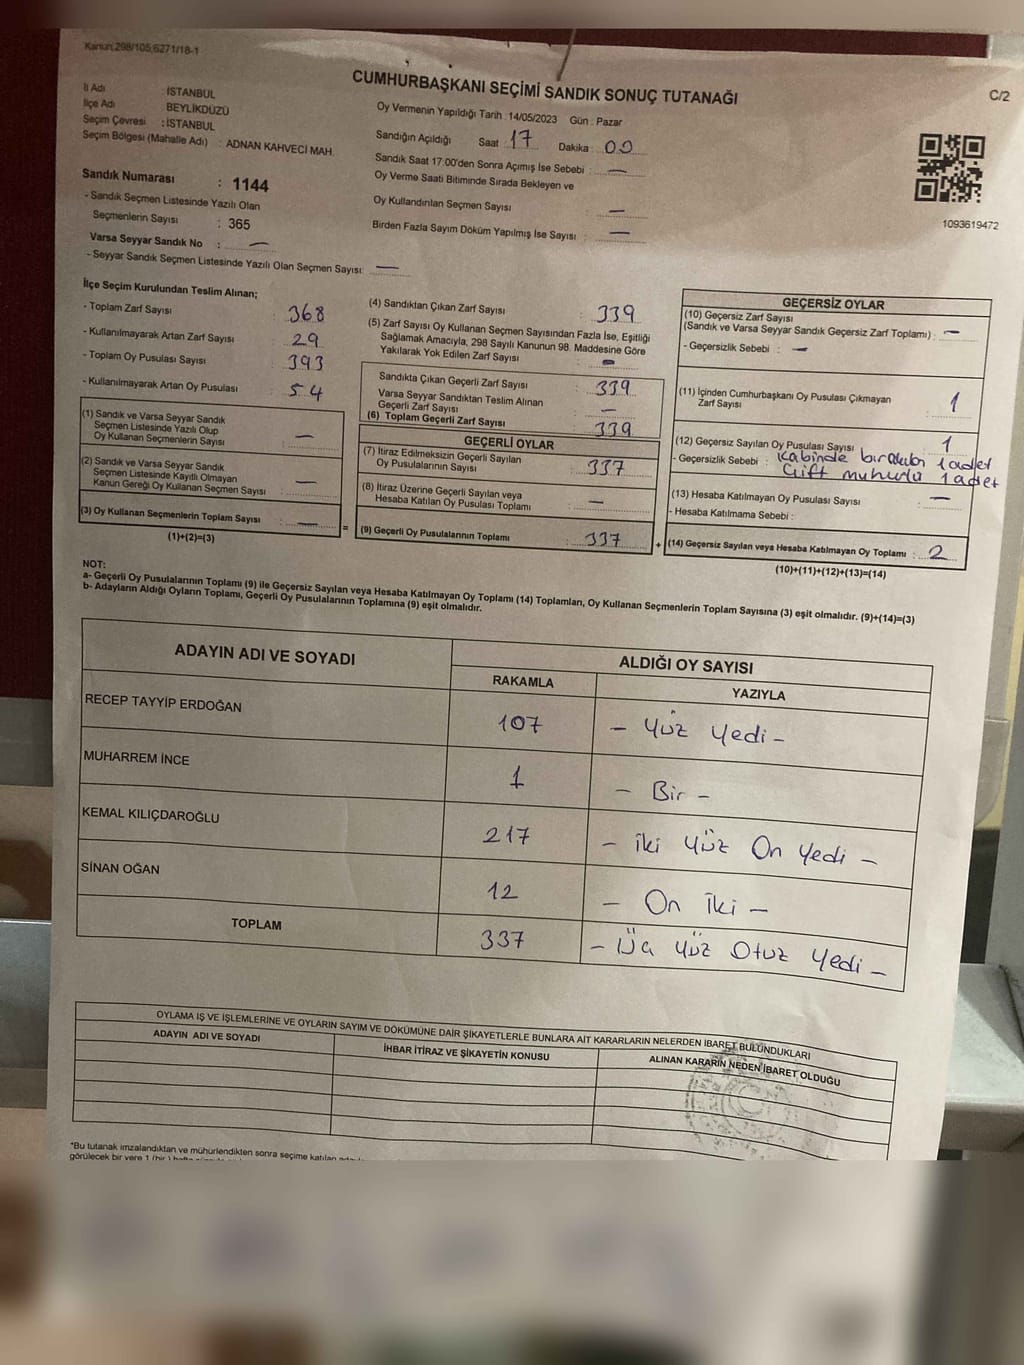 Kanun;298/105;6271/18-1
CUMHURBAŞKANI SEÇİMİ SANDIK SONUÇ TUTANAĞI
C/2
İl Adı : İSTANBUL
İlçe Adı : BEYLİKDÜZÜ
Seçim Çevresi : İSTANBUL
Seçim Bölgesi (Mahalle Adı) : ADNAN KAHVECİ MAH.
Oy Vermenin Yapıldığı Tarih : 14/05/2023 Gün : Pazar
Sandığın Açıldığı Saat 17 Dakika : 00
Sandık Saat 17:00'den Sonra Açımış İse Sebebi : —
Oy Verme Saati Bitiminde Sırada Bekleyen ve
Oy Kullandırılan Seçmen Sayısı : —
Birden Fazla Sayım Döküm Yapılmış İse Sayısı : —
1093619472
Sandık Numarası : 1144
- Sandık Seçmen Listesinde Yazılı Olan
Seçmenlerin Sayısı : 365
Varsa Seyyar Sandık No : —
- Seyyar Sandık Seçmen Listesinde Yazılı Olan Seçmen Sayısı: —
İlçe Seçim Kurulundan Teslim Alınan;
- Toplam Zarf Sayısı : 368
- Kullanılmayarak Artan Zarf Sayısı : 29
- Toplam Oy Pusulası Sayısı : 393
- Kullanılmayarak Artan Oy Pusulası : 54
(1) Sandık ve Varsa Seyyar Sandık
Seçmen Listesinde Yazılı Olup
Oy Kullanan Seçmenlerin Sayısı : —
(2) Sandık ve Varsa Seyyar Sandık
Seçmen Listesinde Kayıtlı Olmayan
Kanun Gereği Oy Kullanan Seçmen Sayısı : —
(3) Oy Kullanan Seçmenlerin Toplam Sayısı : —
(1)+(2)=(3)
(4) Sandıktan Çıkan Zarf Sayısı : 339
(5) Zarf Sayısı Oy Kullanan Seçmen Sayısından Fazla İse, Eşitliği
Sağlamak Amacıyla, 298 Sayılı Kanunun 98. Maddesine Göre
Yakılarak Yok Edilen Zarf Sayısı : —
Sandıkta Çıkan Geçerli Zarf Sayısı : 339
Varsa Seyyar Sandıktan Teslim Alınan
Geçerli Zarf Sayısı : —
(6) Toplam Geçerli Zarf Sayısı : 339
GEÇERLİ OYLAR
(7) İtiraz Edilmeksizin Geçerli Sayılan
Oy Pusulalarının Sayısı : 337
(8) İtiraz Üzerine Geçerli Sayılan veya
Hesaba Katılan Oy Pusulası Toplamı : —
= (9) Geçerli Oy Pusulalarının Toplamı : 337
GEÇERSİZ OYLAR
(10) Geçersiz Zarf Sayısı
(Sandık ve Varsa Seyyar Sandık Geçersiz Zarf Toplamı) : —
- Geçersizlik Sebebi : —
(11) İçinden Cumhurbaşkanı Oy Pusulası Çıkmayan
Zarf Sayısı : 1
(12) Geçersiz Sayılan Oy Pusulası Sayısı : 1
- Geçersizlik Sebebi : Kabinde bırakılan 1 adet
Çift mühürlü 1 adet
(13) Hesaba Katılmayan Oy Pusulası Sayısı : —
- Hesaba Katılmama Sebebi :
+ (14) Geçersiz Sayılan veya Hesaba Katılmayan Oy Toplamı : 2
(10)+(11)+(12)+(13)=(14)
NOT:
a- Geçerli Oy Pusulalarının Toplamı (9) ile Geçersiz Sayılan veya Hesaba Katılmayan Oy Toplamı (14) Toplamları, Oy Kullanan Seçmenlerin Toplam Sayısına (3) eşit olmalıdır. (9)+(14)=(3)
b- Adayların Aldığı Oyların Toplamı, Geçerli Oy Pusulalarının Toplamına (9) eşit olmalıdır.
ADAYIN ADI VE SOYADI ALDIĞI OY SAYISI
RAKAMLA YAZIYLA
RECEP TAYYİP ERDOĞAN 107 - Yüz Yedi -
MUHARREM İNCE 1 - Bir -
KEMAL KILIÇDAROĞLU 217 - İki Yüz On Yedi -
SİNAN OĞAN 12 - On İki -
TOPLAM 337 - Üç Yüz Otuz Yedi -
OYLAMA İŞ VE İŞLEMLERİNE VE OYLARIN SAYIM VE DÖKÜMÜNE DAİR ŞİKAYETLERLE BUNLARA AİT KARARLARIN NELERDEN İBARET BULUNDUKLARI
ADAYIN ADI VE SOYADI İHBAR İTİRAZ VE ŞİKAYETİN KONUSU ALINAN KARARIN NEDEN İBARET OLDUĞU
*Bu tutanak imzalandıktan ve mühürlendikten sonra seçime katılan
görülecek bir yere 1 (bir)